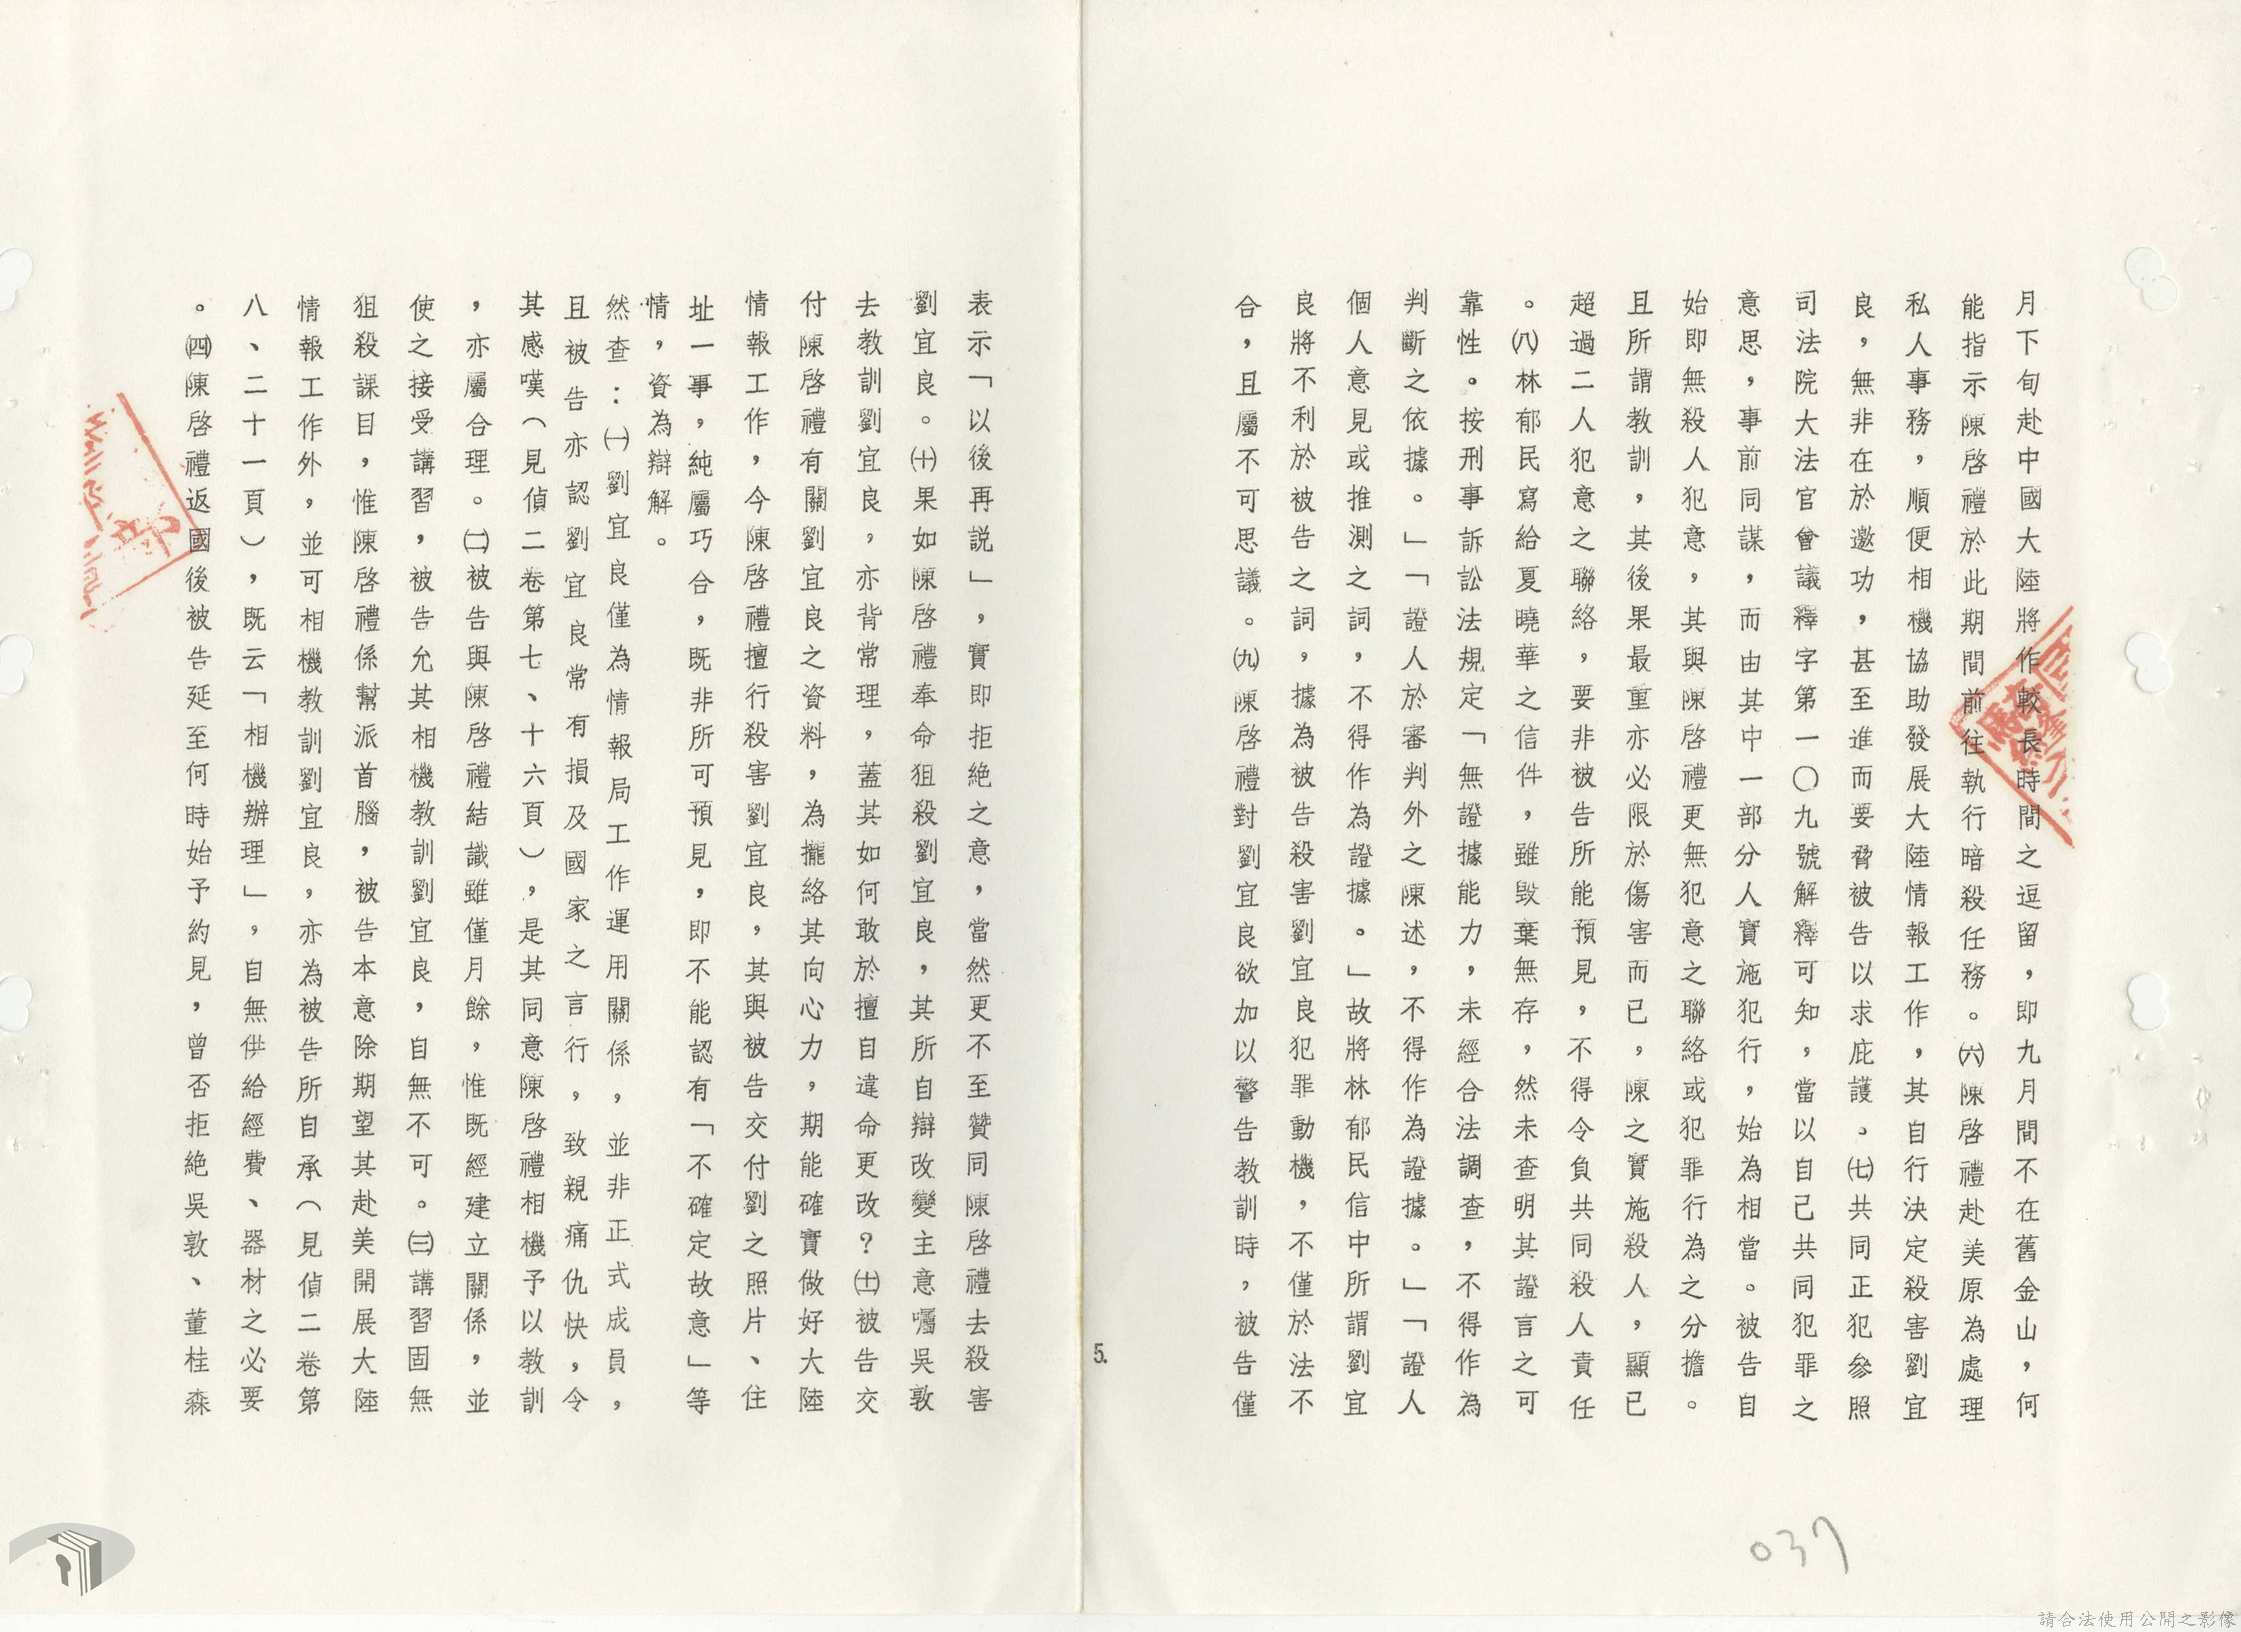 月下旬赴中國大陸將作較長時間之逗留，即九月間不在舊金山，何
能指示陳啓禮於此期間前往執行暗殺任務。㈥陳啓禮赴美原為處理
私人事務，順便相機協助發展大陸情報工作，其自行決定殺害劉宜
良，無非在於邀功，甚至進而要脅被告以求庇護。㈦共同正犯參照
司法院大法官會議釋字第一〇九號解釋可知，當以自己共同犯罪之
意思，事前同謀，而由其中一部分人實施犯行，始為相當。被告自
始即無殺人犯意，其與陳啓禮更無犯意之聯絡或犯罪行為之分擔。
且所謂教訓，其後果最重亦必限於傷害而已，陳之實施殺人，顯已
超過二人犯意之聯絡，要非被告所能預見，不得令負共同殺人責任
。㈧林郁民寫給夏曉華之信件，雖毀棄無存，然未查明其證言之可
靠性。按刑事訴訟法規定「無證據能力，未經合法調查，不得作為
判斷之依據。」「證人於審判外之陳述，不得作為證據。」「證人
個人意見或推測之詞，不得作為證據。」故將林郁民信中所謂劉宜
良將不利於被告之詞，據為被告殺害劉宜良犯罪動機，不僅於法不
合，且屬不可思議。㈨陳啓禮對劉宜良欲加以警告教訓時，被告僅
5.
表示「以後再説」，實即拒絶之意，當然更不至贊同陳啓禮去殺害
劉宜良。㈩果如陳啓禮奉命狙殺劉宜良，其所自辯改變主意囑吳敦
去教訓劉宜良，亦背常理，蓋其如何敢於擅自違命更改？(十一)被告交
付陳啓禮有關劉宜良之資料，為攏絡其向心力，期能確實做好大陸
情報工作，今陳啓禮擅行殺害劉宜良，其與被告交付劉之照片、住
址一事，純屬巧合，既非所可預見，即不能認有「不確定故意」等
情，資為辯解。
然查：㈠劉宜良僅為情報局工作運用關係，並非正式成員，
且被告亦認劉宜良常有損及國家之言行，致親痛仇快，令
其感嘆（見偵二卷第七、十六頁），是其同意陳啓禮相機予以教訓
，亦屬合理。㈡被告與陳啓禮結識雖僅月餘，惟既經建立關係，並
使之接受講習，被告允其相機教訓劉宜良，自無不可。㈢講習固無
狙殺課目，惟陳啓禮係幫派首腦，被告本意除期望其赴美開展大陸
情報工作外，並可相機教訓劉宜良，亦為被告所自承（見偵二卷第
八、二十一頁），既云「相機辦理」，自無供給經費、器材之必要
。㈣陳啓禮返國後被告延至何時始予約見，曾否拒絶吳敦、董桂森
037
請合法使用公開之影像